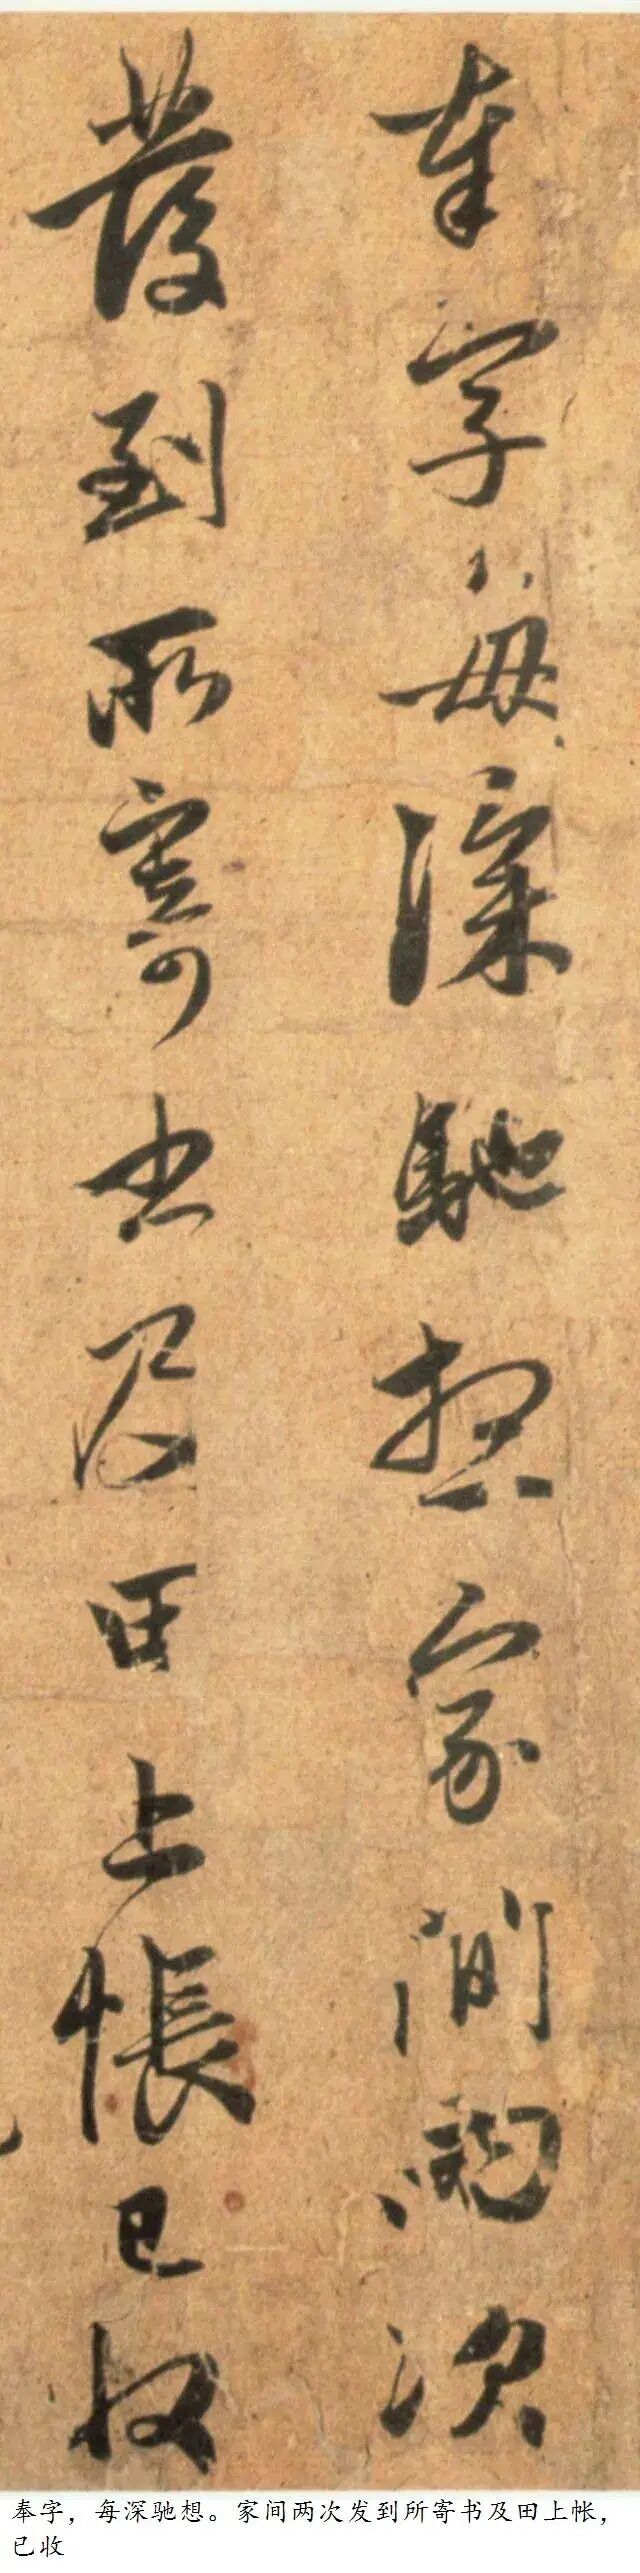 奉字每深馳想家間兩次
發到所寄書及田上帳已收
奉字，每深驰想。家间两次发到所寄书及田上帐，
已收